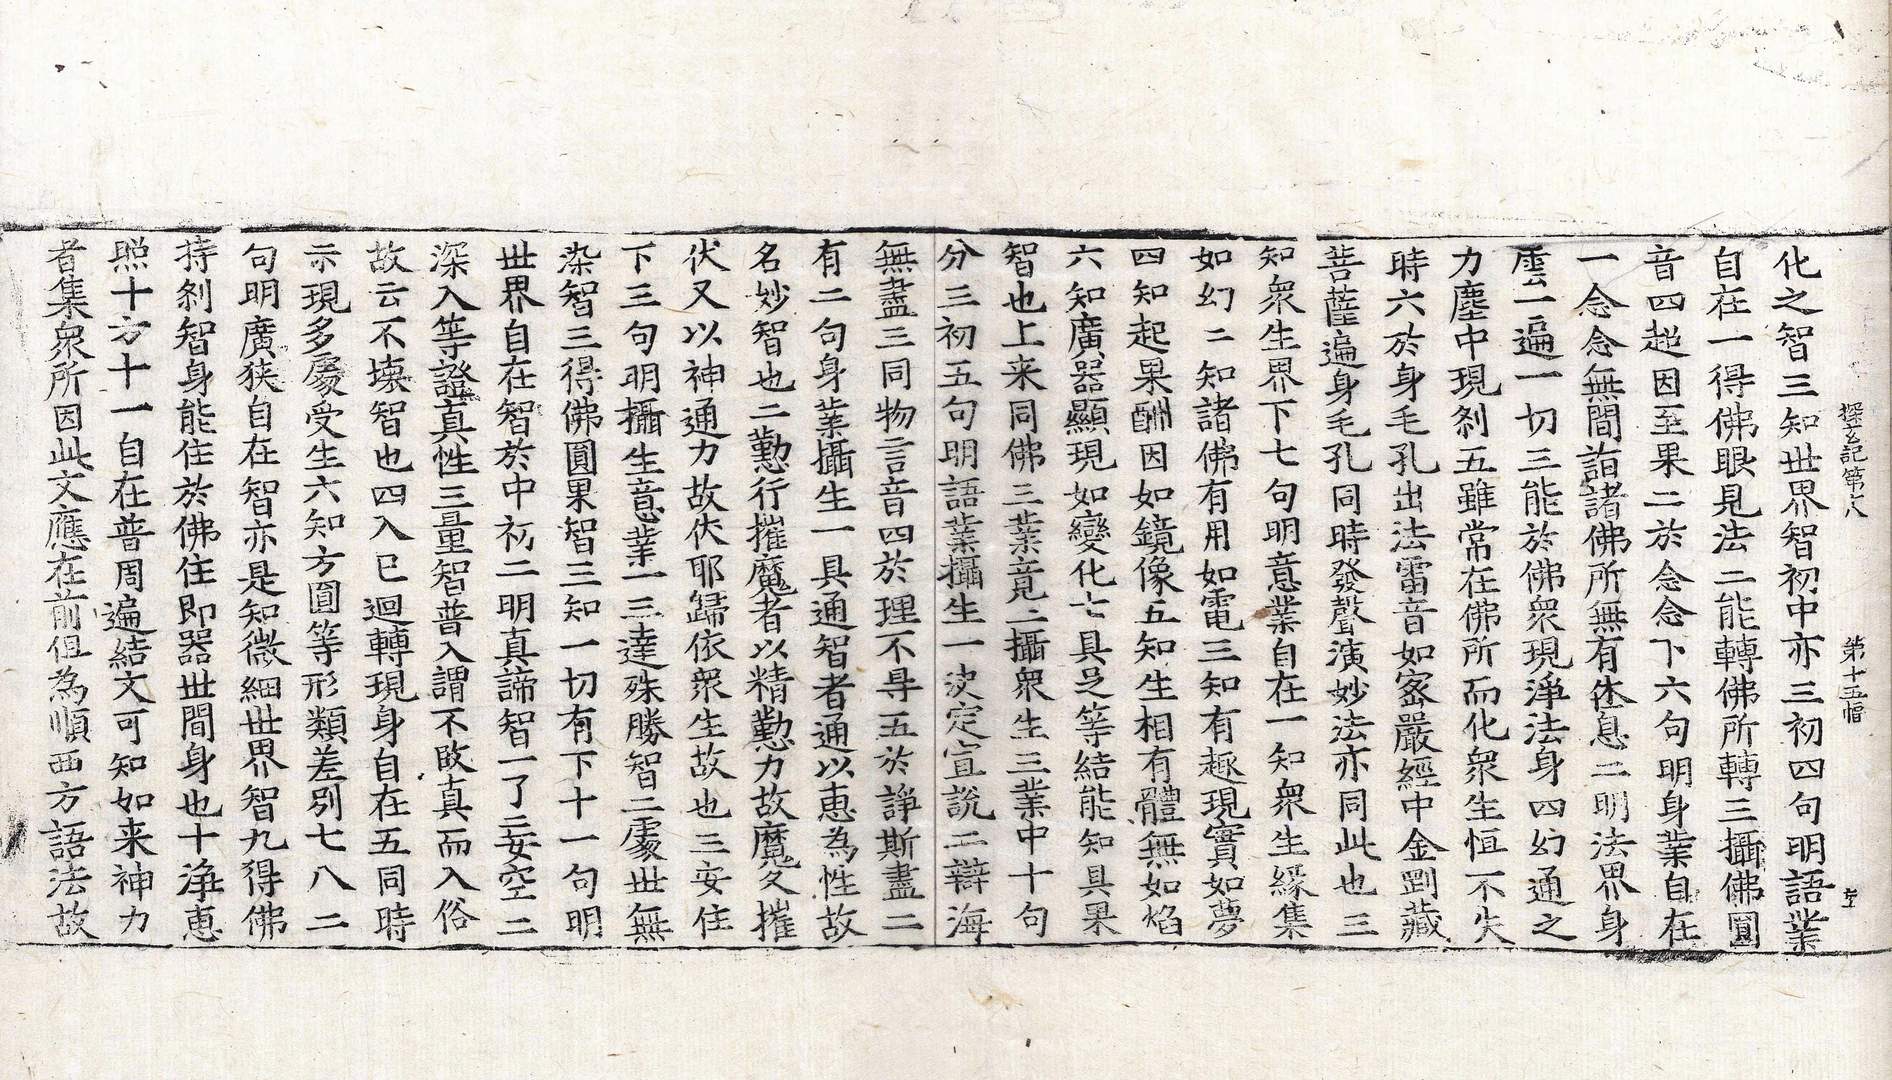 探玄記第八　第十五幅
化之智三知世界智初中亦三初四句明語業
自在一得佛眼見法二能轉佛所轉三攝佛圓
音四超因至果二於念念下六句明身業自在
一念念無間詣諸佛所無有休息二明法界身
雲一遍一切三能於佛衆現淨法身四幻通之
力塵中現刹五雖常在佛所而化衆生恒不失
時六於身毛孔出法雷音如密嚴經中金剛藏
菩薩遍身毛孔同時發聲演妙法亦同此也三
知衆生界下七句明意業自在一知衆生緣集
如幻二知諸佛有用如電三知有趣現實如夢
四知起果酬因如鏡像五知生相有體無如焰
六知廣器顯現如變化七具足等結能知具果
智也上来同佛三業竟二攝衆生三業中十句
分三初五句明語業攝生一决定宣說二辯海
無盡三同物言音四於理不㝵五於諍斯盡二
有二句身業攝生一具通智者通以恵為性故
名妙智也二懃行摧魔者以精懃力故魔久摧
伏又以神通力故伏耶歸依衆生故也三安住
下三句明攝生意業一三達殊勝智二處世無
染智三得佛圓果智三知一切有下十一句明
世界自在智於中初二明真諦智一了二妄空二
深入等證真性三量智普入謂不敗真而入俗
故云不壞智也四入已迴轉現身自在五同時
示現多處受生六知方圓等形類差別七八二
句明廣狹自在智亦是知微細世界智九得佛
持刹智身能住於佛住即器世間身也十淨恵
照十方十一自在普周遍結文可知如来神力
者集衆所因此文應在前但為順西方語法故